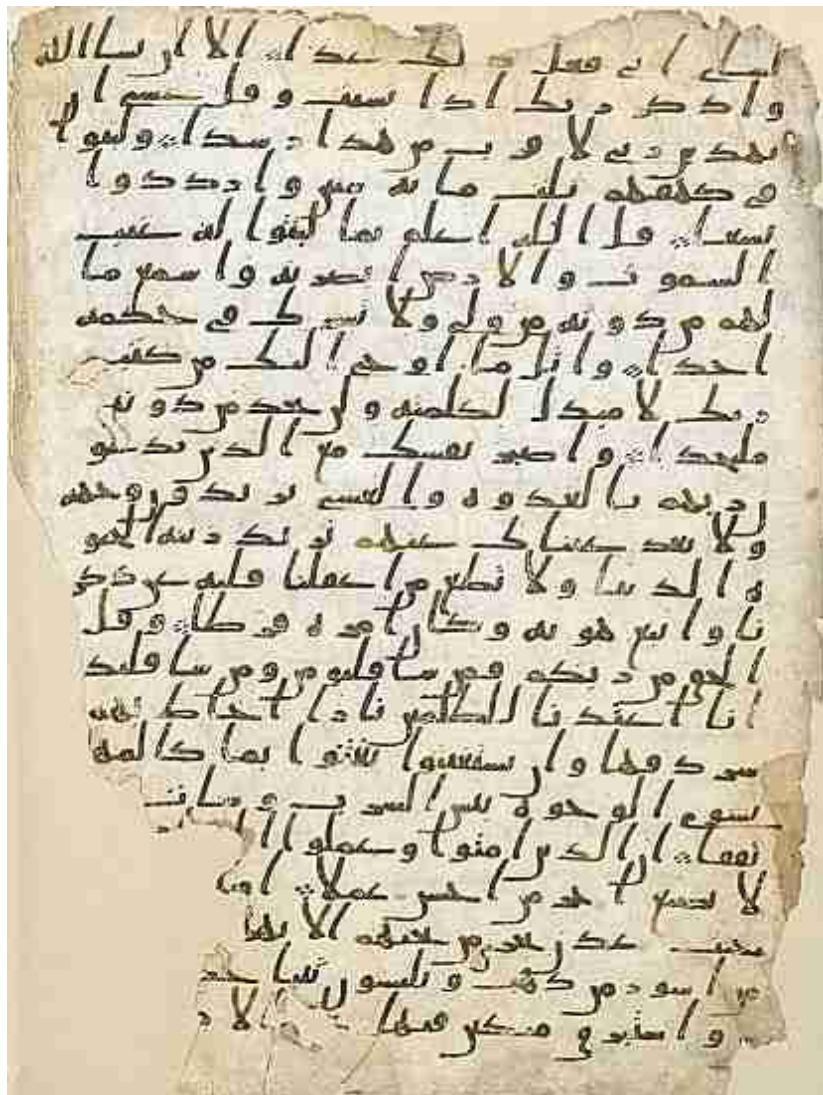 لشاي اني فعل ذلك غدا الا ان يشا الله
واذكر ربك اذا نسيت وقل عسى ان
يهدين ربي لاقرب من هذا رشدا ولبثوا
في كهفهم ثلث مايه سنين وازددوا
تسعا قل الله اعلم بما لبثوا له غيب
السموت والارض ابصر به واسمع ما
لهم من دونه من ولي ولا يشرك في حكمه
احدا واتل ما اوحي اليك من كتب
ربك لا مبدل لكلمته ولن تجد من دونه
ملتحدا واصبر نفسك مع الذين يدعو
ن ربهم بالغدوه والعشي يريدون وجهه
ولا تعد عيناك عنهم تريد زينه الحيو
ه الدنيا ولا تطع من اغفلنا قلبه عن ذكر
نا واتبع هويه وكان امره فرطا وقل
الحق من ربكم فمن شا فليومن ومن شا فليك
انا اعتدنا للظلمين نارا احاط بهم
سردقها وان يستغيثوا يغثوا بما كالمه
يشوي الوجوه بئس الشرب وسات
تفقا ان الذين امنوا وعملوا
لا نضيع اجر من احسن عملا
جنت عدن تجري من تحتهم الانها
من اسور من ذهب ويلبسون ثيابا خضر
واستبرق متكين فيها الار